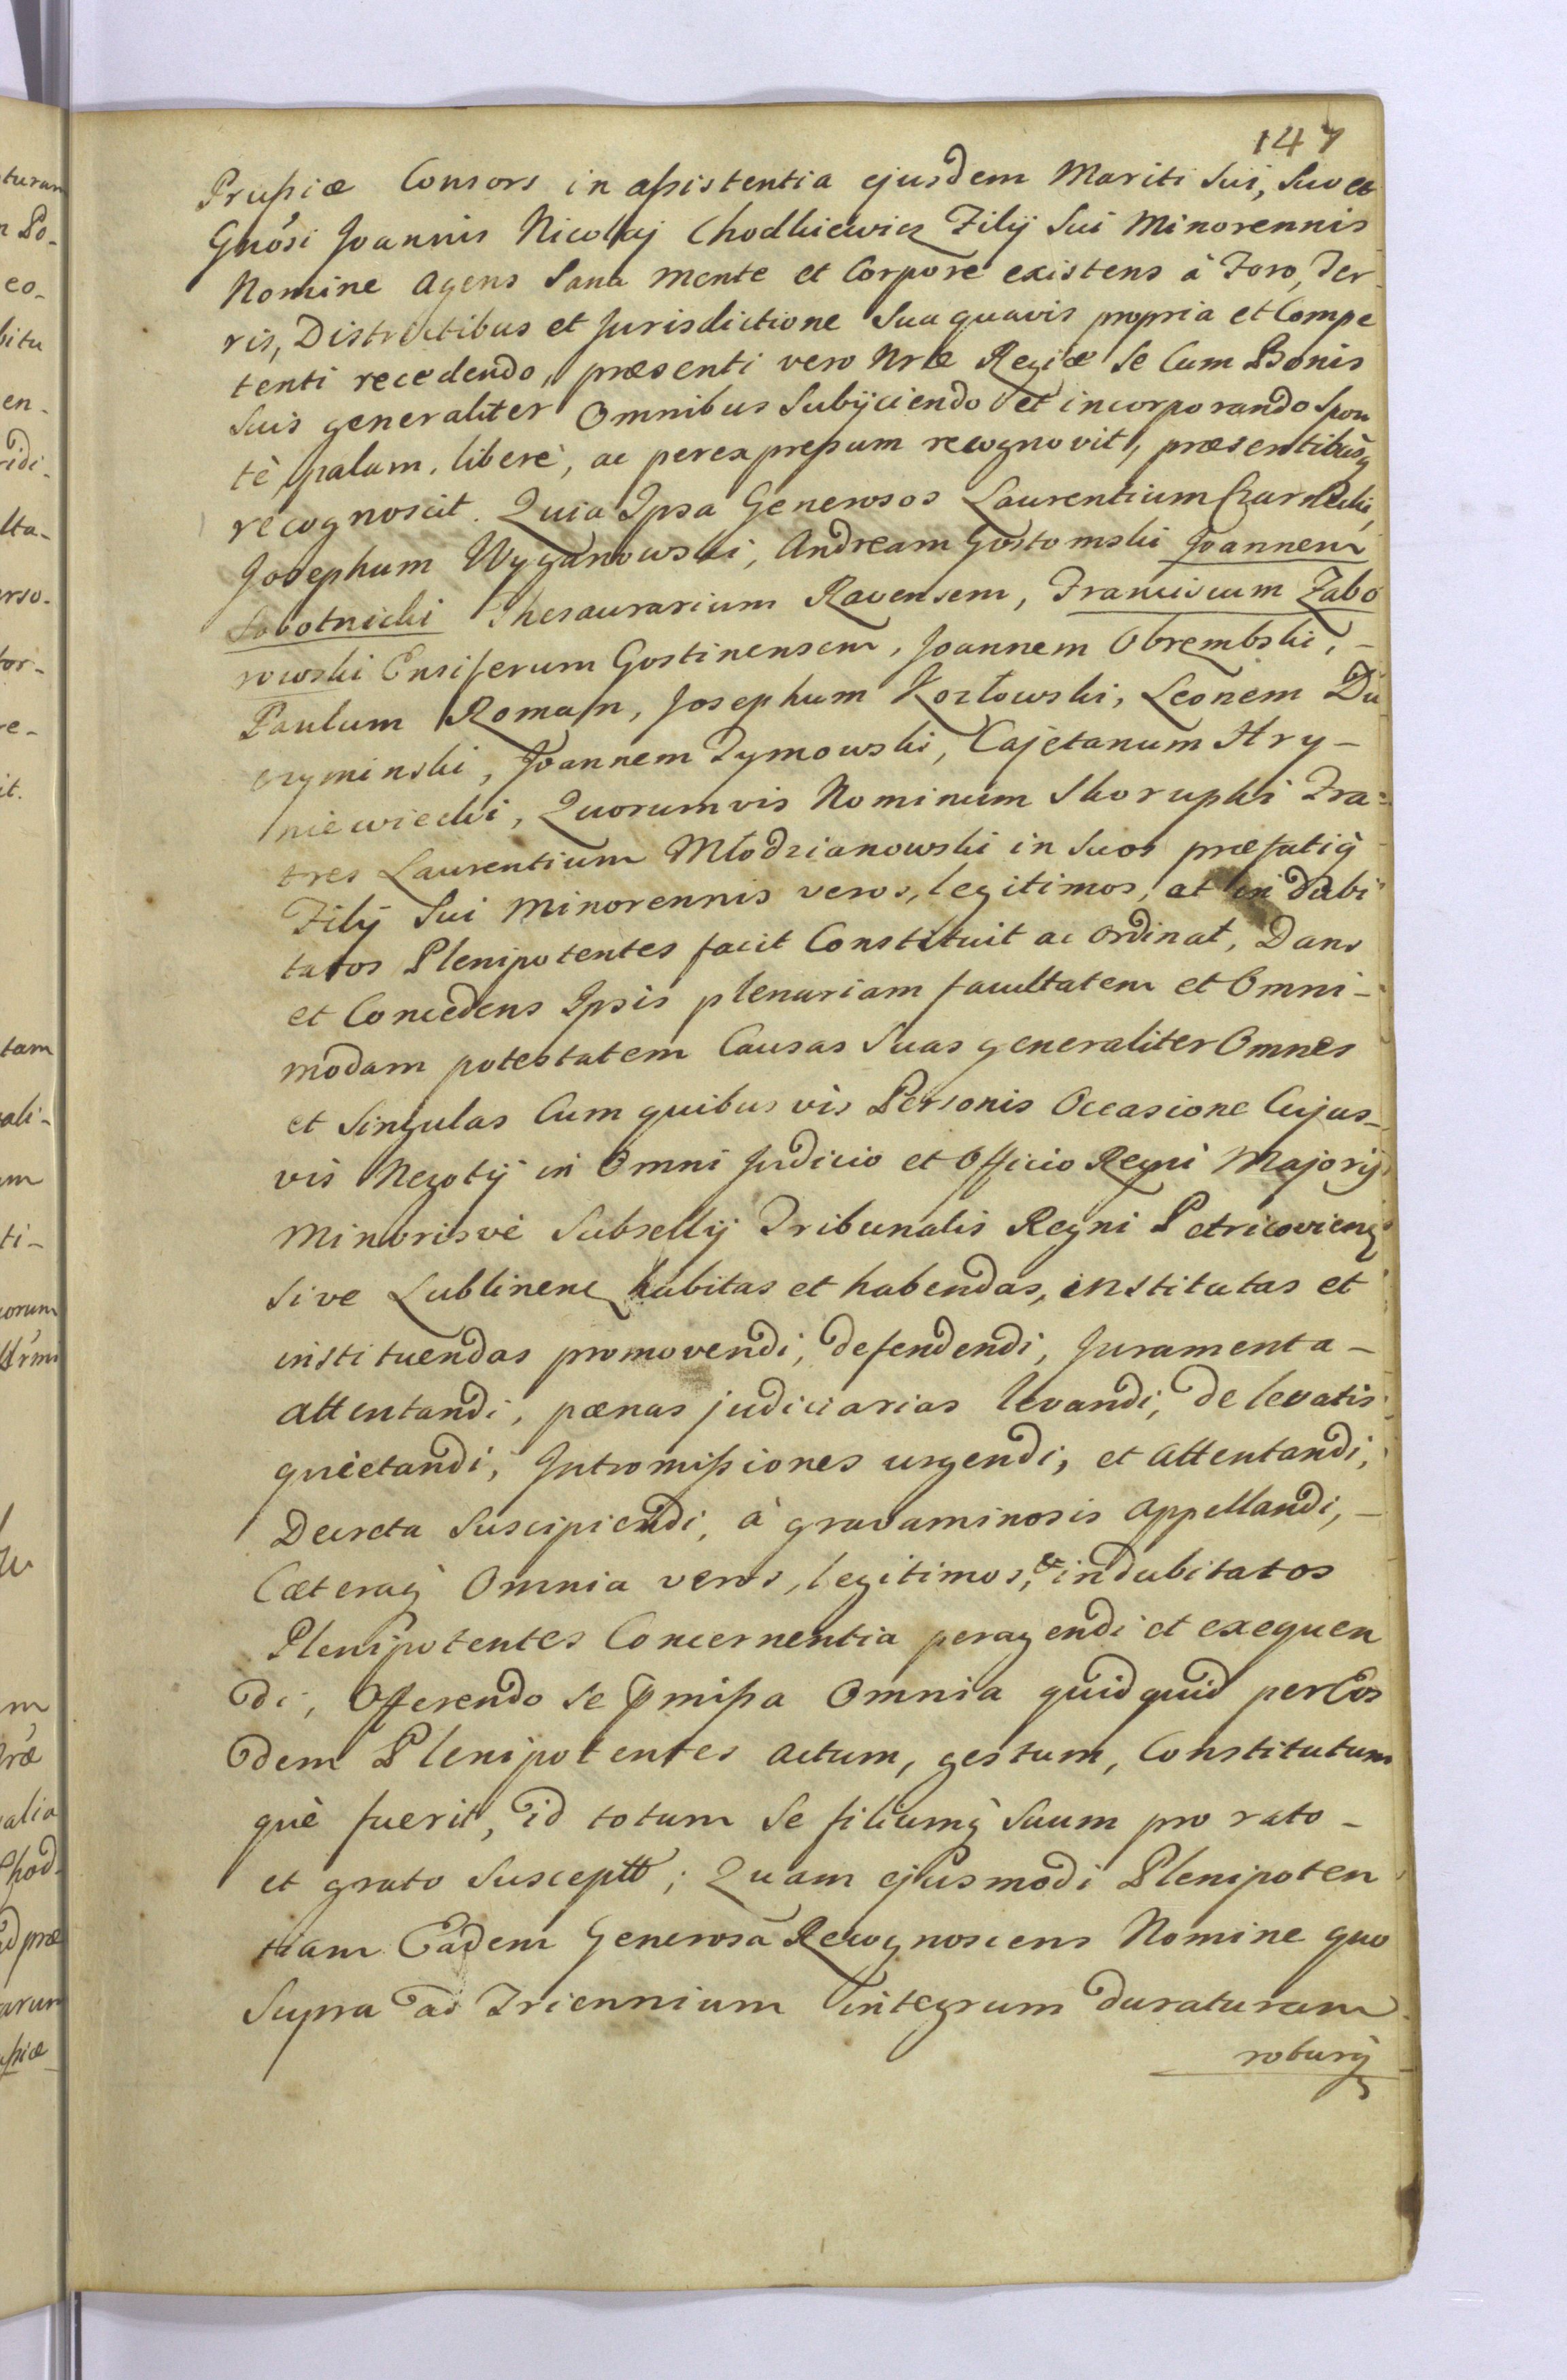 147
Prussiæ Consors in assistentia ejusdem Mariti Sui, Suo et
Gnosi Joannis Nicolaj Chodkiewicz Filij Sui Minorennis
Nomine agens Sana mente et Corpore existens à Foro, Ter
ris, Districtibus et Jurisdictione Sua quavis propria et Compe
tenti recedendo, præsenti vero Nræ Regiæ Se Cum Bonis
Suis generaliter Omnibus Subijciendo et incorporando Spon
tè palam, liberè, ac per expressum recognovit, præsentibusq
recognoscit. Quia Ipsa Generosos Laurentium Czarnecki,
Josephum Wyganowski, Andream Gostomski Joannem
Sobotnicki Thesaurarium Ravensem, Franciscum Zabo
rowski Ensiferum Gostinensem, Joannem Obrembski, -
Paulum Roman, Josephum Kozłowski, Leonem Du
czyminski, Joannem Tymowski, Cajetanum Hry-
niewiecki, Quorumvis Nominum Skorupki Fra=
tres Laurentium Młodzianowski in Suos præfatiq
Filij Sui Minorennis veros, legitimos, et in dubi
tatos Plenipotentes facit Constituit ac Ordinat, Dans
et Concedens Ipsis plenariam facultatem et Omni-
modam potestatem Causas Suas generaliter Omnes
et Singulas Cum quibus vis Personis Occasione Cujus-
vis Negotij in Omni Judicio et Officio Regni Majorij
Minorisvè Subsellij Tribunalis Regni Petricoviens
Sive Lublinens habitas et habendas, institutas et
instituendas promovendi, defendendi, Juramenta-
attentandi, pænas judiciarias levandi, de levatis
quietandi, Intromissiones urgendi, et attentandi,
Decreta Suscipiendi, à gravaminosis appellandi, -
Cæteraq Omnia veros, legitimos, & indubitatos
Plenipotentes Concernentia peragendi et exequen
di, Offerendo Se pmissa Omnia quidquid per Eos
dem Plenipotentes actum, gestum, Constitutum
què fuerit, id totum Se filiumq Suum pro rato -
et grato Susceptt; Quam ejusmodi Plenipoten
tiam Eadem Generosa Recognoscens Nomine quo
Supra ad Triennium integrum duraturam
roburq